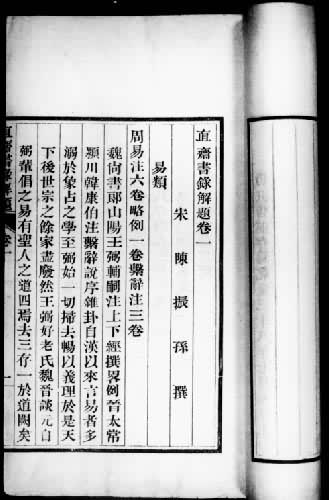 直齋書錄解題卷一
宋 陳 振 孫 撰
易類
周易注六卷略例一卷繫辭注三卷
魏尚書郎山陽王弼輔嗣注上下經撰畧例晉太常
潁川韓康伯注繫辭說序雜卦自漢以來言易者多
溺於象占之學至弼始一切掃去暢以義理於是天
下後世宗之餘家盡廢然王弼好老氏魏晉談元自
弼輩倡之易有聖人之道四焉去三存一於道闕矣
直齋書錄解題 卷一 一